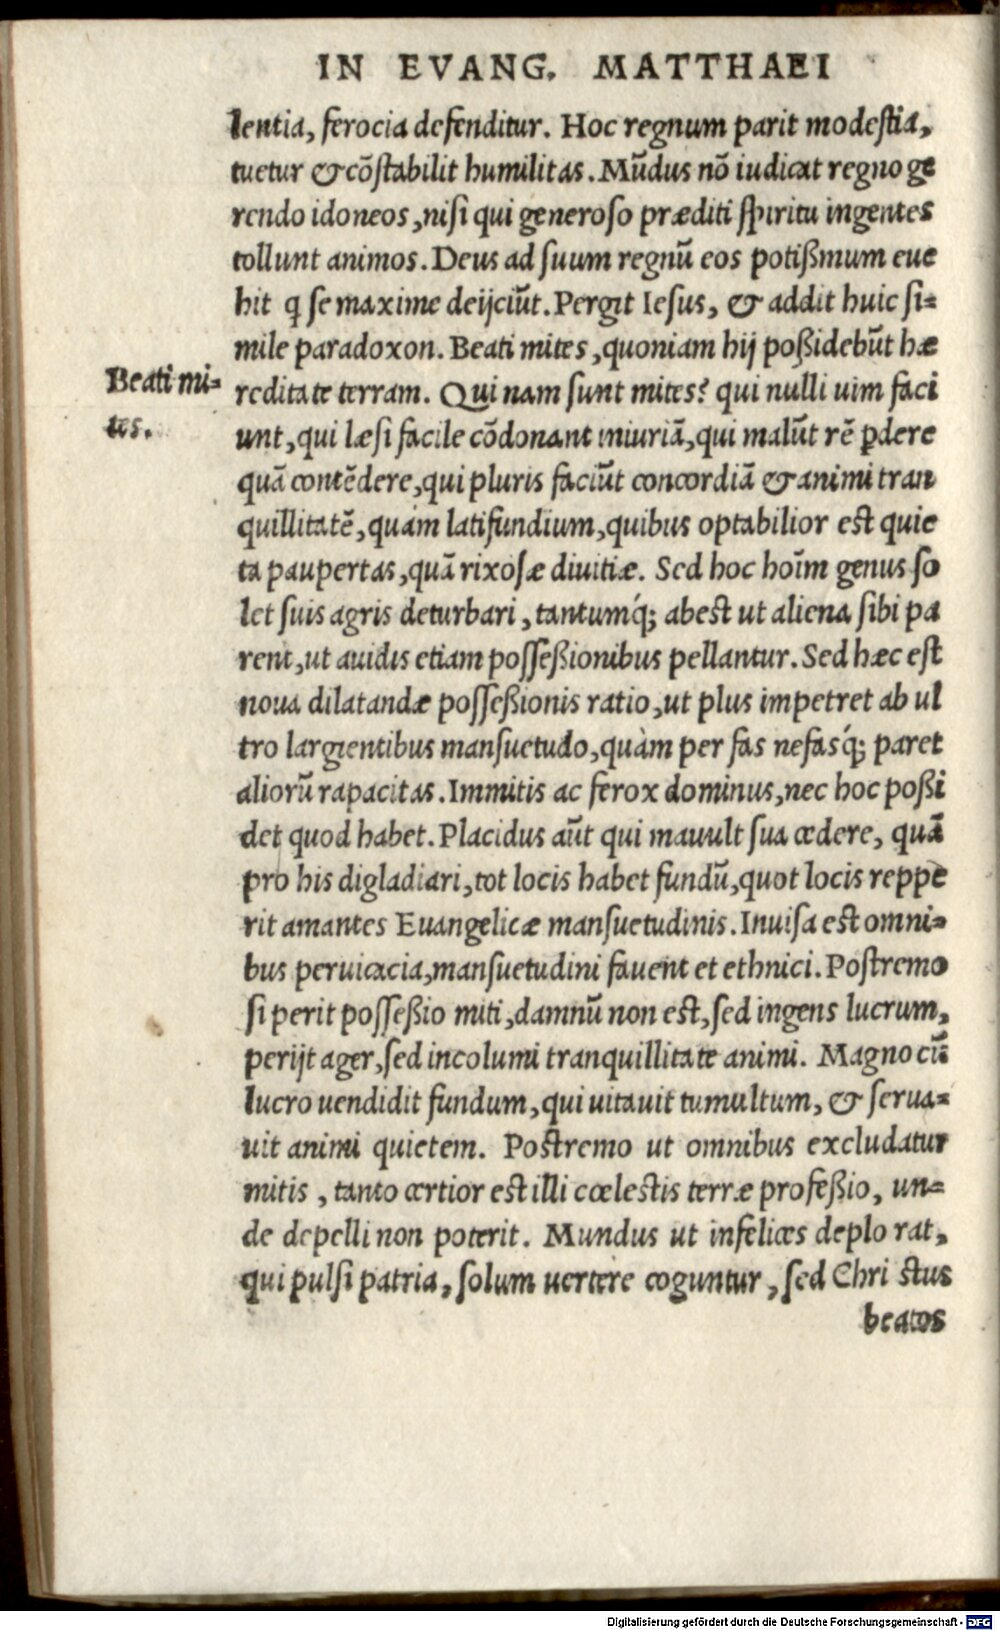 IN EVANG. MATTHAEI
lentia, ferocia defenditur. Hoc regnum parit modestia,
tuetur & cõstabilit humilitas. Mũdus nõ iudicat regno ge
rendo idoneos, nisi qui generoso præditi spiritu ingentes
tollunt animos. Deus ad suum regnũ eos potißmum eue
hit q̃ se maxime deijciũt. Pergit Iesus, & addit huic si-
mile paradoxon. Beati mites, quoniam hij poßidebũt hæ
Beati mi-
tes.
reditate terram. Qui nam sunt mites? qui nulli uim faci
unt, qui læsi facile cõdonant iniuriã, qui malũt rẽ ꝑdere
quã contẽdere, qui pluris faciũt concordiã & animi tran
quillitatẽ, quàm latifundium, quibus optabilior est quie
ta paupertas, quã rixosæ diuitiæ. Sed hoc hoĩm genus so
let suis agris deturbari, tantumq́; abest ut aliena sibi pa
rent, ut auidis etiam posseßionibus pellantur. Sed hæc est
noua dilatandæ posseßionis ratio, ut plus impetret ab ul
tro largientibus mansuetudo, quàm per fas nefasq́; paret
aliorũ rapacitas. Immitis ac ferox dominus, nec hoc poßi
det quod habet. Placidus aũt qui mauult sua cedere, quã
pro his digladiari, tot locis habet fundũ, quot locis reppe
rit amantes Euangelicæ mansuetudinis. Inuisa est omni-
bus peruicacia, mansuetudini fauent et ethnici. Postremo
si perit posseßio miti, damnũ non est, sed ingens lucrum,
perijt ager, sed incolumi tranquillitate animi. Magno cũ
lucro uendidit fundum, qui uitauit tumultum, & serua-
uit animi quietem. Postremo ut omnibus excludatur
mitis, tanto certior est illi cœlestis terræ profeßio, un-
de depelli non poterit. Mundus ut infelices deplo rat,
qui pulsi patria, solum uertere coguntur, sed Chri stus
beatos
Digitalisierung gefördert durch die Deutsche Forschungsgemeinschaft - DFG